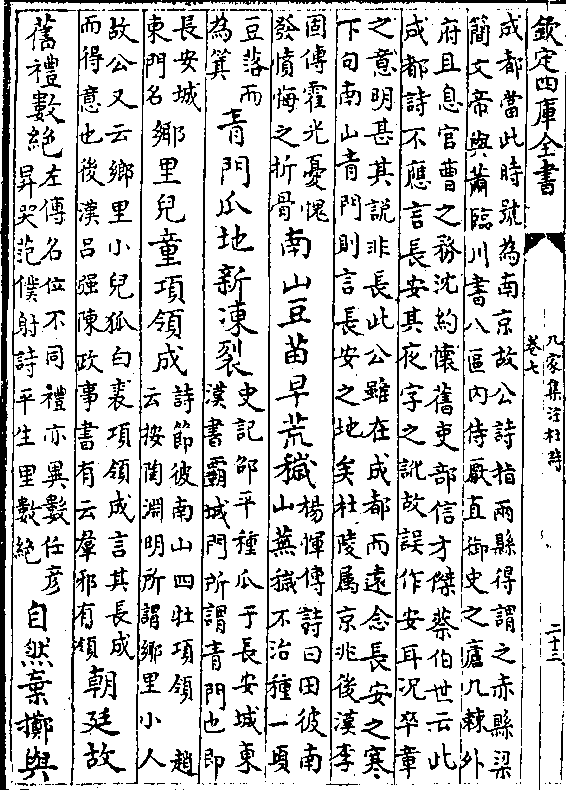 欽定四庫全書
九家集注杜詩
卷七
二十三
成都當此時號為南京故公詩指兩縣得謂之赤縣梁
簡文帝與蕭臨川書八區內侍厭直御史之廬九棘外
府且息官曹之務沈約懷舊吏部信才傑蔡伯世云此
成都詩不應言長安其夜字之訛故誤作安耳況卒章
之意明甚其說非長此公雖在成都而遠念長安之寒
下句南山青門則言長安之地矣杜陵属京兆後漢李
固傳霍光憂愧
發憤悔之折骨
南山豆苗早荒穢
楊惲傳詩曰田彼南
山蕪穢不治種一頃
豆落而
為箕
青門瓜地新凍裂
史記邵平種瓜于長安城東
漢書霸城門所謂青門也即
長安城
東門名
鄉里兒童項領成
詩節彼南山四牡項領 趙
云按陶淵明所謂鄉里小人
故公又云鄉里小兒狐白裘項領成言其長成
而得意也後漢呂强陳政事書有云羣邪有領
朝廷故
舊禮數絶
左傳名位不同禮亦異數任彦
昇哭范僕射詩平生里數絶
自然棄擲與